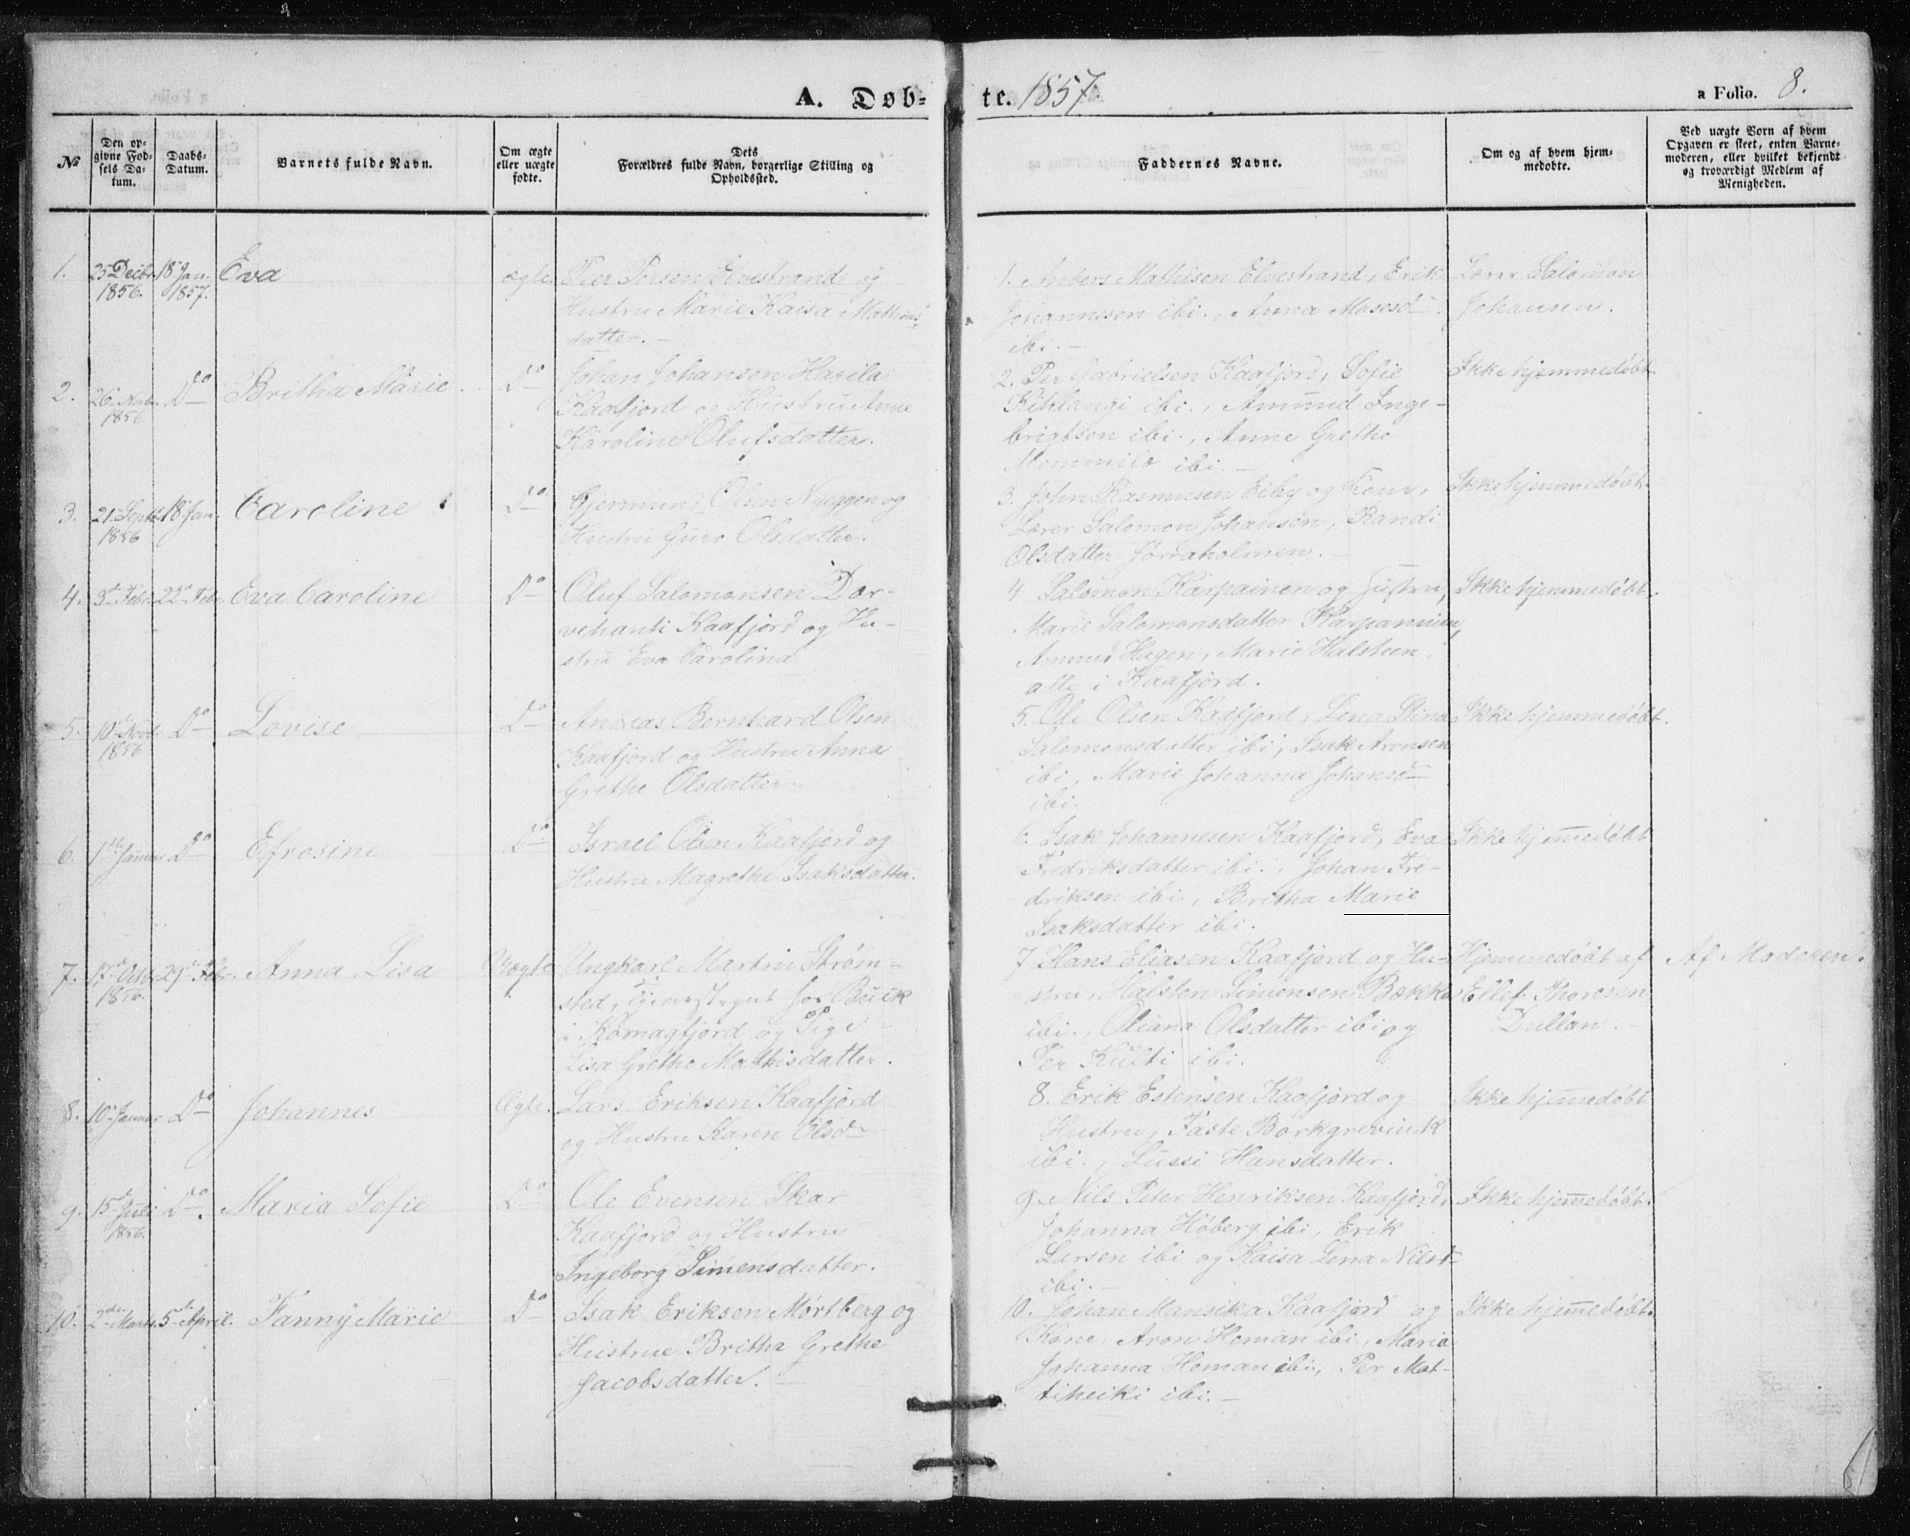 A. Døb-
te. 1857.
a Folio. 8.
№
Den op-
givne Fød-
sels Da-
tum.
Daabs-
Datum.
Barnets fulde Navn.
Om ægte
eller uægte
fødte.
Dets
Forældres fulde Navn, borgerlige Stilling og
Opholdssted.
Faddernes Navne.
Om og af hvem hjem-
medøbte.
Ved uægte Børn af hvem
Opgaven er skeet, enten Barne-
moderen, eller hvilket bekjendt
og troværdigt Medlem af
Menigheden.
1.
25 Decbr.
1856.
18 Jan.
1857.
Eva
ægte.
Peer Persen Elvestrand og
Hustru Marie Kaisa Mathius
datter.
1. Anders Mathisen Elvestrand, Erik
Johannesen ibi., Anna Mosesd
ibi.
Lærer Salomon
Johansen.
2.
26 Novb.
1856
Do
Britha Marie
Do
Johan Johanson Harila
Kaafjord og Hustru Anne
Karoline Olufsdatter.
2. Per Gabrielsen Kaafjord, Sofie
Kihlangi ibi., Amund Inge-
brigtsen ibi., Anne Grethe
ibi.
Ikke hjemmedøbt
3.
21 Septb.
1856
18 Jan.
Caroline
Do
Gjermund Olsen Nyeggen og
Hustru Guro Olsdatter.
3. John Rasmusen Eiby og Kone,
Lærer Salomon Johansen, Randi
Olsdatter Jørraholmen.
Ikke hjemmedøbt.
4.
3 Febr.
22 Feb.
Eva Caroline
Do
Oluf Salomonsen Dor-
vehanti Kaafjord og Hu-
stru Eva Carolina
4 Salomon Karpainen og Hustru,
Marie Salomonsdatter Karpanien,
Amund Hagen, Marie Halsteen,
alle i Kaafjord.
Ikke hjemmedøbt.
5.
10 Novb.
1856
Do
Lovise
Do
Andreas Bernhard Olsen
Kaafjord og Hustru Anna
Grethe Olsdatter.
5. Ole Olsen Kaafjord, Lena Stina
Salomonsdatter ibi, Isak Aronsen
ibi, Marie Johanna Johansd
ibi.
Ikke hjemmedøbt.
6.
1ste Januar
Do
Efrosine
Do
Israel Olsen Kaafjord og
Hustru Magrethe Isaksdatter.
6. Isak Johannesen Kaafjord, Eva
Fredriksdatter ibi., Johan Fre-
driksen ibi., Britha Marie
Isaksdatter ibi.
Ikke hjemmedøbt
7.
17 Octbr
1856
22 Febr.
Anna Lisa
Uægte.
Ungkarl Martin Strøm-
sted, Tjenestegut hos Buck
i Komagfjord og Pige
Lisa Grethe Mathisdatter.
7 Hans Eliasen Kaafjord og Hu-
stru, Halsten Simensen Bækken
ibi., Oliana Olsdatter ibi og
Per Kulti ibi.
Hjemmedøbt af
Ellef Thoresen
Dullan.
Af Moderen.
8.
10 Januar
Do
Johannes
Ægte.
Lars Eriksen Kaafjord
og Hustru Karen Olsd
8. Erik Estensen Kaafjord og
Hustru, Faste Borkgrevink
ibi., Lussi Hansdatter.
Ikke hjemmedøbt
9.
15 Juli
1856.
Do.
Maria Sofie
Do
Ole Evensen Skar
Kaafjord og Hustru
Ingeborg Simensdatter.
9. Nils Peter Henriksen Kaafjord,
Johanna Høberg ibi, Erik
Larsen ibi og Kaisa Lena Nilsd
ibi.
Ikke hjemmedøbt.
10.
2den Marts
5te April.
Fanny Marie
Do
Isak Eriksen Mørtberg og
Hustrue Britha Grethe
Jacobsdatter.
10. Johan Mansika Kaafjord og
Kone, Aron Heman ibi., Maria
Johanna Homan ibi, Per Mat-
tiheiki ibi.
Ikke hjemmedøbt.